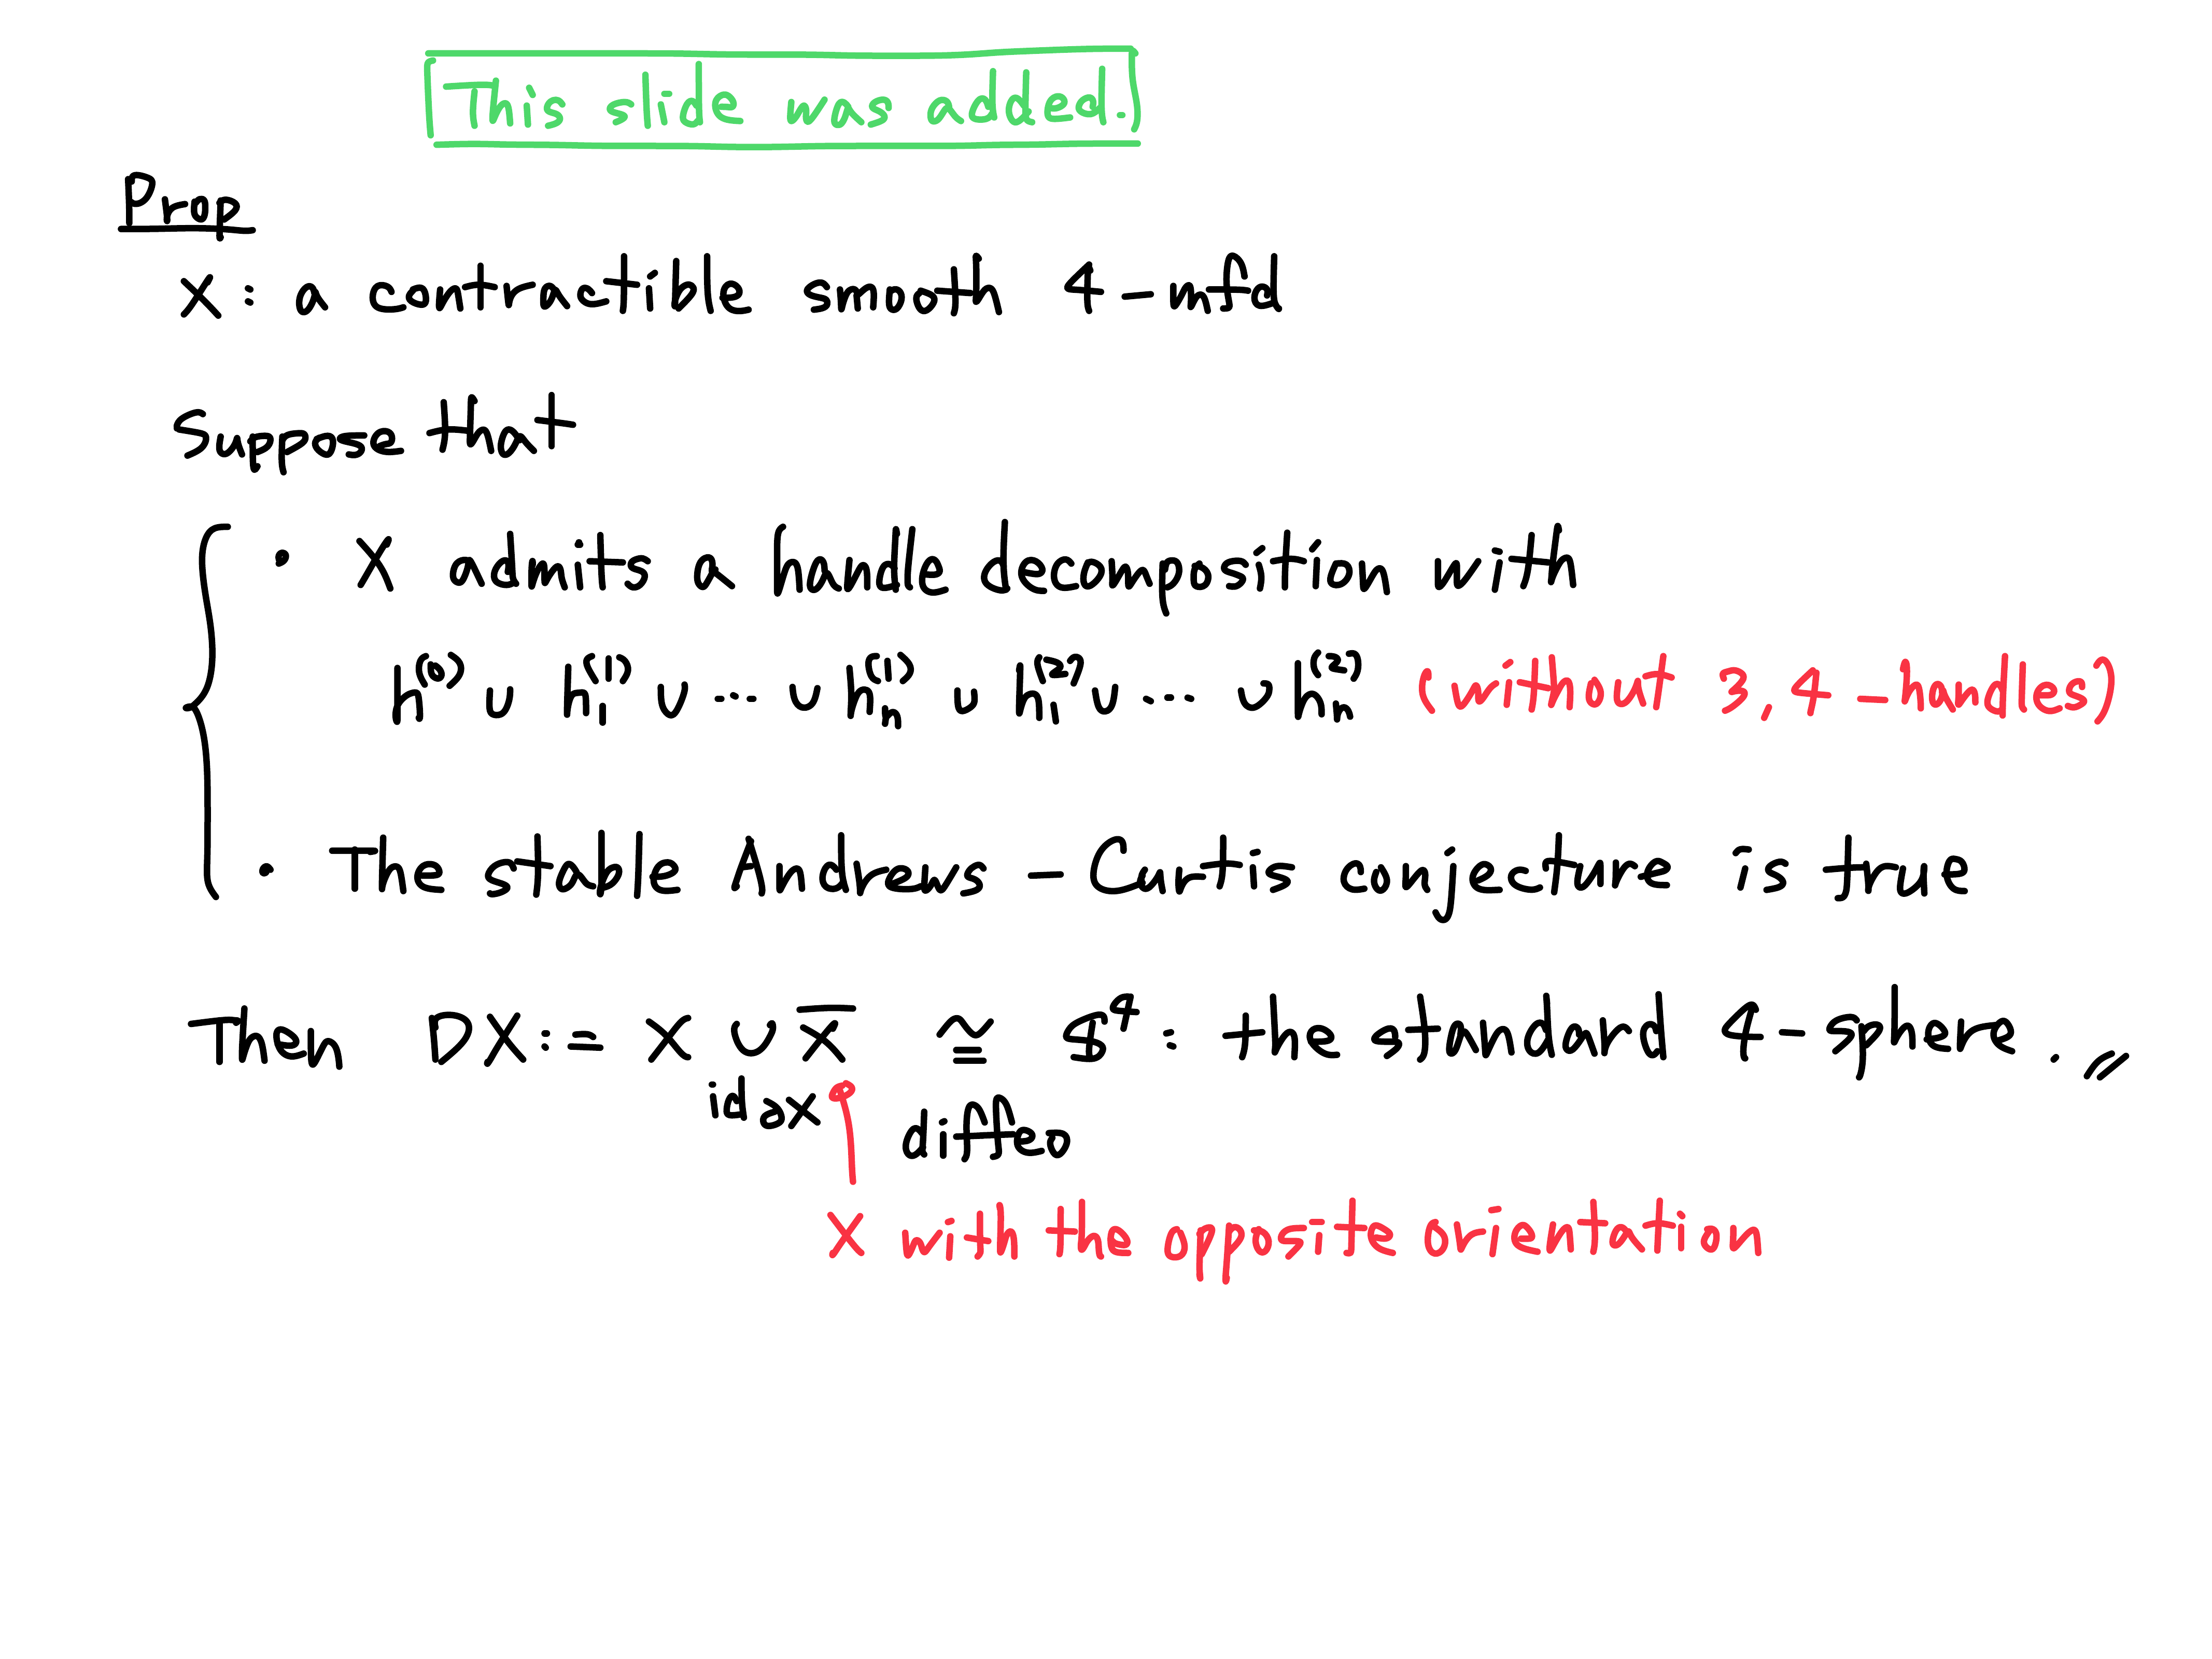 This slide was added.
Prop
X : a contractible smooth 4-mfd
Suppose that
• X admits a handle decomposition with
h^(0) ∪ h_1^(1) ∪ ⋯ ∪ h_n^(1) ∪ h_1^(2) ∪ ⋯ ∪ h_n^(2) (without 3, 4-handles)
• The stable Andrews-Curtis conjecture is true
Then DX := X ∪ X̅ ≅ S^4 : the standard 4-sphere. //
id ∂X diffeo
X with the opposite orientation